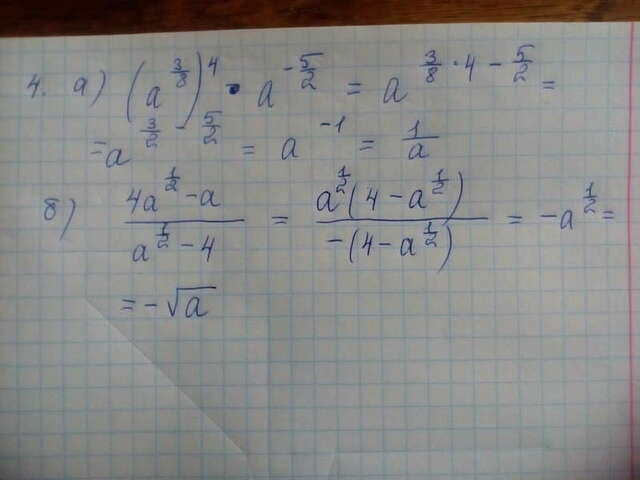 4. а) (a^{3/8})^4 · a^{-5/2} = a^{3/8 · 4 - 5/2} =
= a^{3/2 - 5/2} = a^{-1} = 1/a
б) (4a^{1/2} - a)/(a^{1/2} - 4) = (a^{1/2}(4 - a^{1/2}))/(-(4 - a^{1/2})) = -a^{1/2} =
= -√a